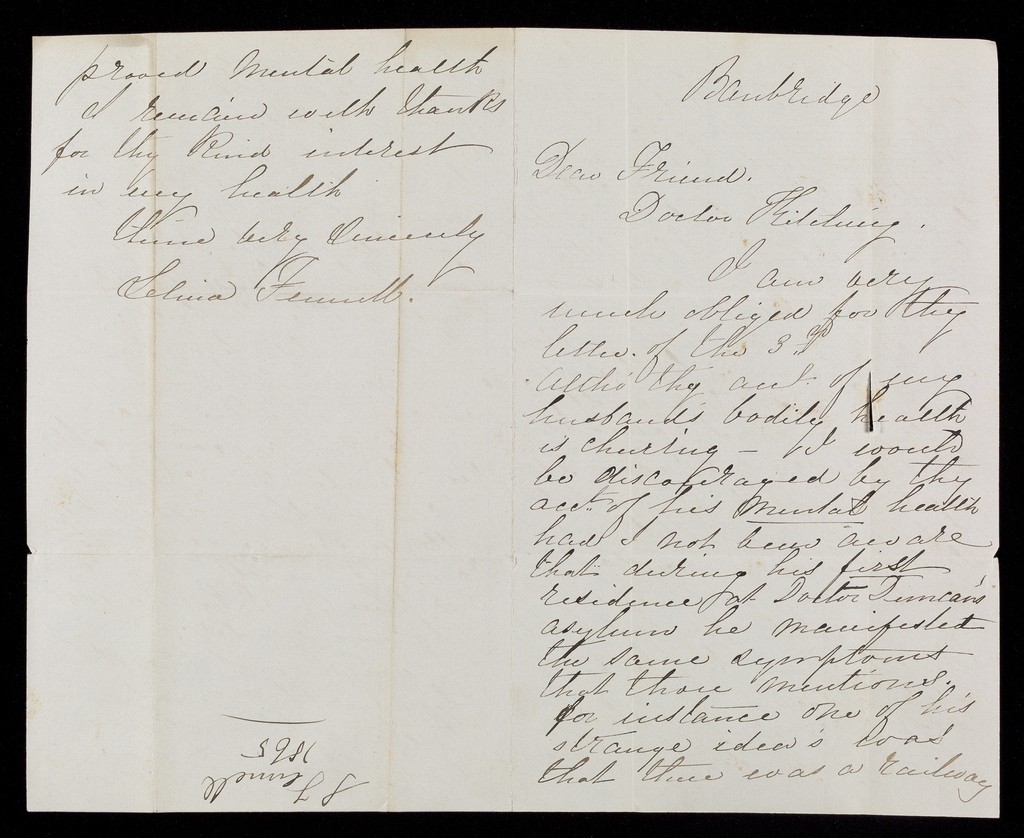 Banbridge
Dear Friend.
Doctor Kitching.
I am very
much obliged for thy
letter of the 3rd
altho' thy acct. of my
husbands bodily health
is cheering – I would
be discouraged by thy
acct. of his mental health
had I not been aware
that during his first
residence at Doctor Duncan's
asylum he manifested
the same symptoms
that thou mentions.
for instance one of his
strange idea's was
that there was a railway
proved mental health
I remain with thanks
for thy kind interest
in my health
thine very sincerely
Selina Fennell.
S Fennell
1865